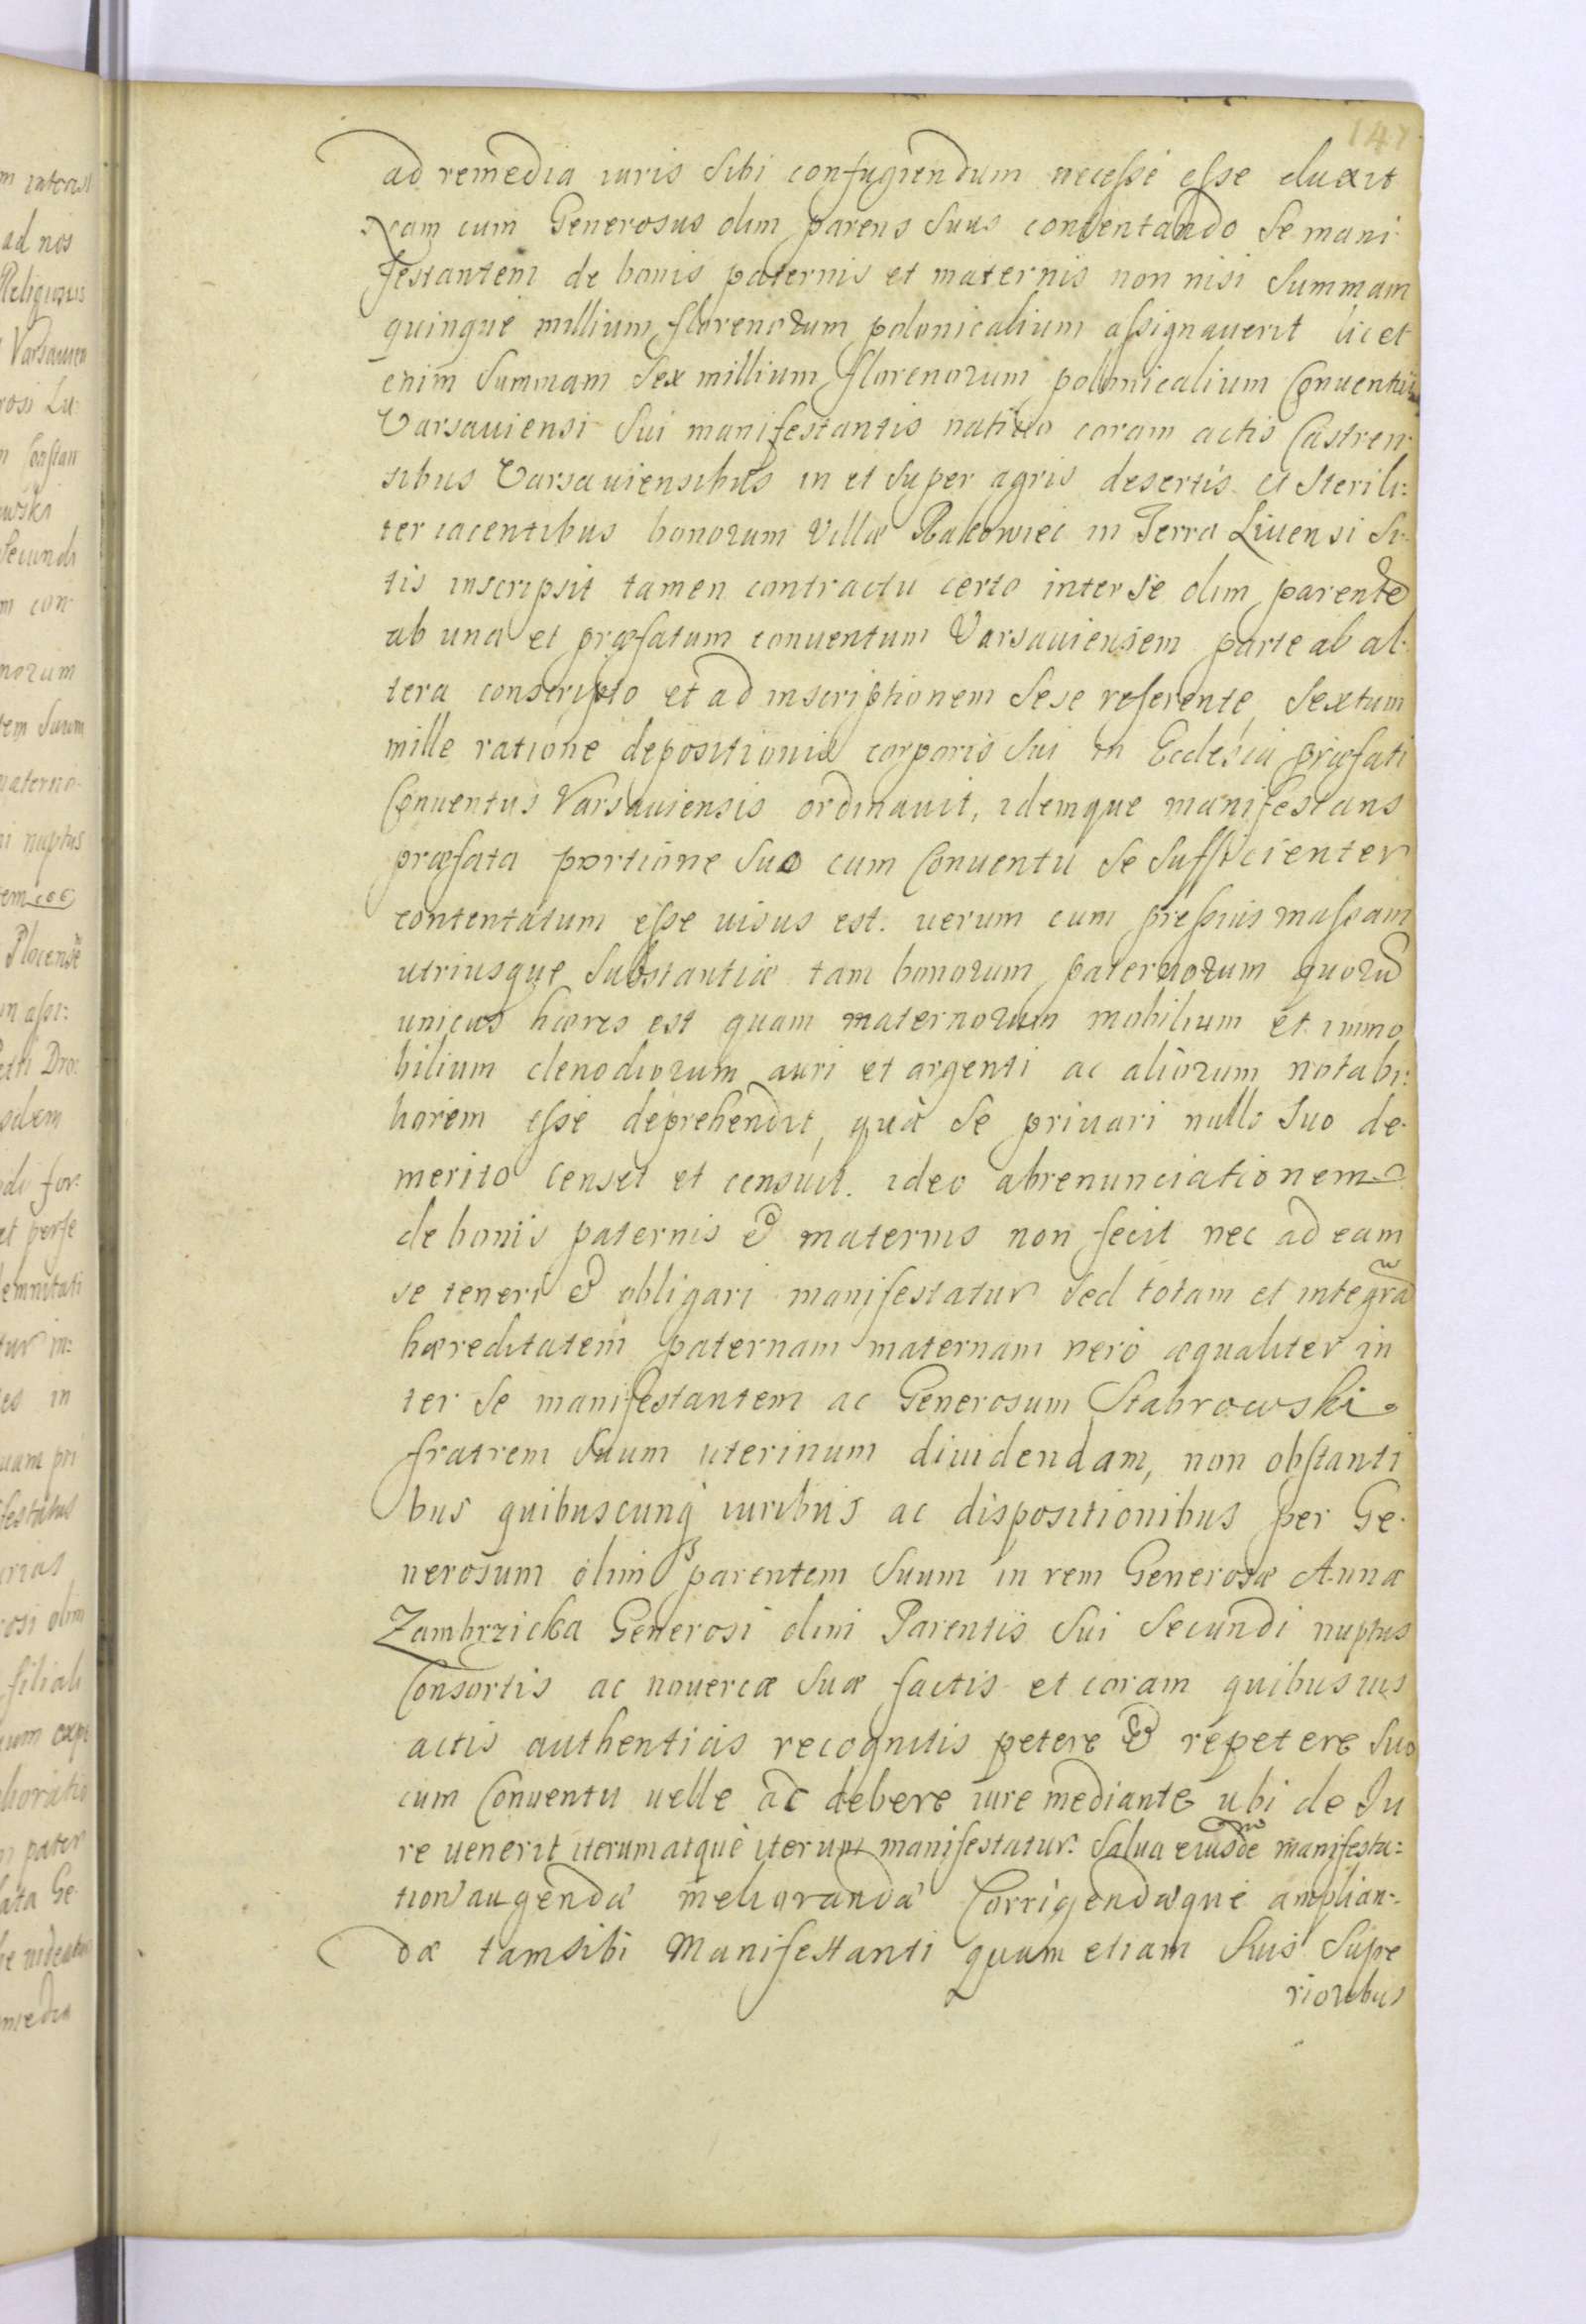 147
ad remedia iuris sibi confugiendum necesse esse duxit
Nam cum Generosus olim parens suus contentando se mani
festantem de bonis paternis et maternis non nisi summam
quinque millium florenorum polonicalium assignauerit licet
enim summam sex millium florenorum polonicalium Conuentui
Varsauiensi sui manifestantis natiuo coram actis Castren-
sibus Varsauiensibus in et super agris desertis et sterili:
ter iacentibus bonorum Villæ Rakowiec in Terra Liuensi si-
tis inscripsit tamen contractu certo inter se olim parente
ab una et præfatum conuentum Varsauiensem parte ab al-
tera conscripto et ad inscriptionem sese referente, sextum
mille ratione depositionis corporis sui in Ecclesia præfati
Conuentus Varsauiensis ordinauit, idemque manifestans
præfata portione suo cum Conuentu se sufficienter
contentatum esse uisus est. uerum cum pressius massam
utriusque substantiæ tam bonorum paternorum quorū
unicus hæres est quam maternorum mobilium et immo
bilium clenodiorum auri et argenti ac aliorum notabi:
liorem esse deprehendit, quà se priuari nullo suo de-
merito censet et censuit. ideo abrenunciationem
de bonis paternis & maternis non fecit nec ad eam
se teneri & obligari manifestatur sed totam et integrã
hæreditatem paternam maternam uero æqualiter in
ter se manifestantem ac Generosum Stabrowski
fratrem suum uterinum diuidendam, non obstanti
bus quibuscunq iuribus ac dispositionibus per Ge-
nerosum olim parentem suum in rem Generosæ Annæ
Zambrzicka Generosi olim Parentis sui secundi nuptus
Consortis ac nouercæ suæ factis et coram quibusuis
actis authenticis recognitis petere & repetere suo
cum Conuentu uelle ac debere iure mediante ubi de Iu
re uenerit iterum atque iterum manifestatur. Salua eiusdē manifesta:
tion augendæ meliorandæ Corrigendæque amplian-
dæ tam sibi Manifestanti quam etiam suis supe
rioribus